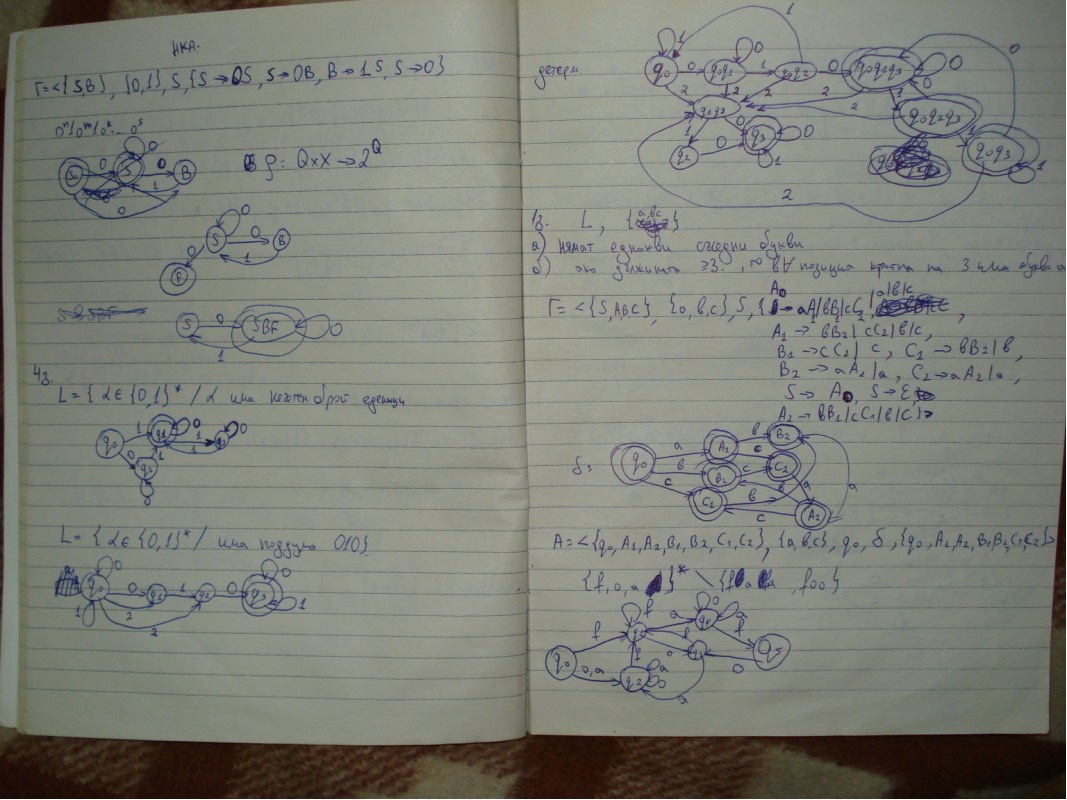 НКА.
Γ=<{S,B}, {0,1}, S, {S→0S, S→0B, B→1S, S→0}
0ⁿ10ᵐ10ᵏ...0ˢ
S 0 0 B
1
0
ρ: Q×X→2^Q
S 0 0 B
0 1
F
S 0 SBF 0
1
4з.
L={α∈{0,1}* / α има нечетен брой единици
q0 1 q1 0 1 0
0 1 1
L={α∈{0,1}* / има поддума 010}
q0 0 q1 1 q2 0 q3 0
1 2 2 1
детерм.
1
q0 0 q0q1 1 q0q2 0 q0q1q3 0
1 0
2 2 2 2 1 0
q0q2q3
q2 0 q3 0
1
q0q3 1
2
1з. L, {a,b,c}
а) нямат еднакви съседни букви
б) ако дължината ≥3, то в ∀ позиция кратна на 3 има буква a
Γ=<{S,A,B,C}, {a,b,c}, S, {
A0→aA1|bB1|cC1|a|b|c,
A1→bB2|cC2|b|c,
B1→cC2|c, C1→bB2|b,
B2→aA2|a, C2→aA2|a,
S→A0, S→ε,
A2→bB1|cC1|b|c}>
δ:
q0 a A1 b B2
b B1 c C2
c C1 b A2
c a
A=<{q0,A1,A2,B1,B2,C1,C2}, {a,b,c}, q0, δ, {q0,A1,A2,B1,B2,C1,C2}>
{f,o,a}* \ , foo}
f a 0 a
q0 f f f q5
o,a q2 a o
a